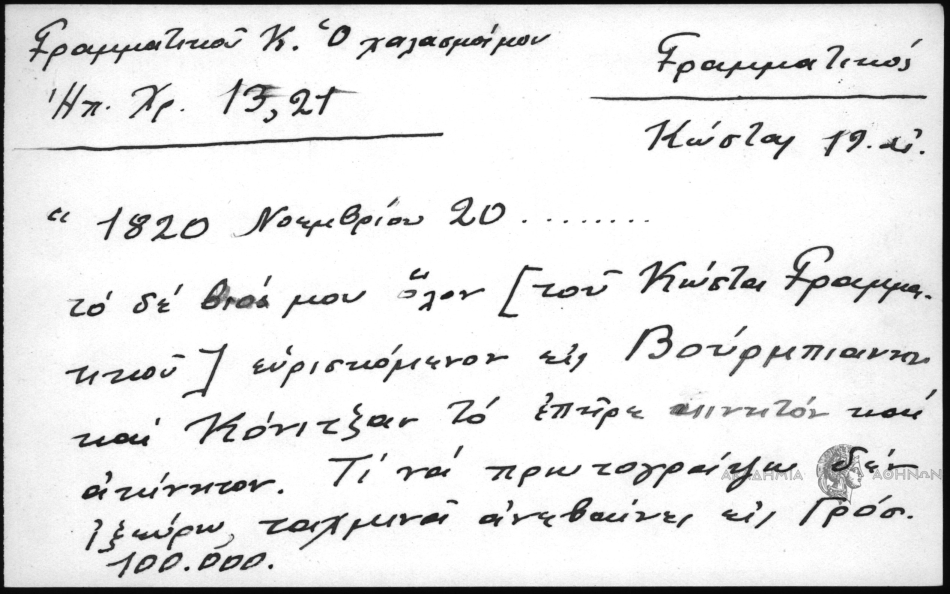 Γραμματικοῦ Κ. Ὁ χαλασμός μου
Ἠπ. Χρ. 13, 21
Γραμματικός
Κώστας 19. αἰ.
“ 1820 Νοεμβρίου 20 .........
τό δέ βιό μου ὅλον [τοῦ Κώστα Γραμμα-
τικοῦ] εὑρισκόμενον εἰς Βούρμπιανην
καί Κόνιτζαν τό ἐπῆρε κινητόν καί
ἀκίνητον. Τί νά πρωτογράψω δέν
ἰξεύρω, ταχμινᾶ ἀνεβαίνει εἰς Γρόσ.
100.000.
ΑΚΑΔΗΜΙΑ ΑΘΗΝΩΝ